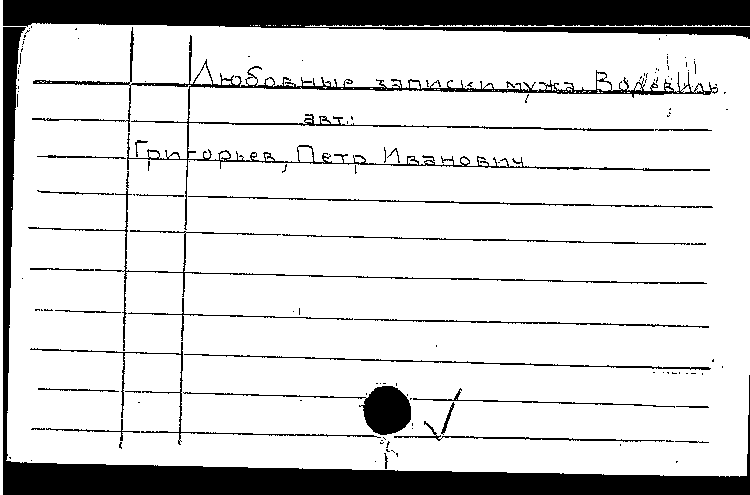 Любовные записки мужа. Водевиль.
авт.:
Григорьев, Петр Иванович